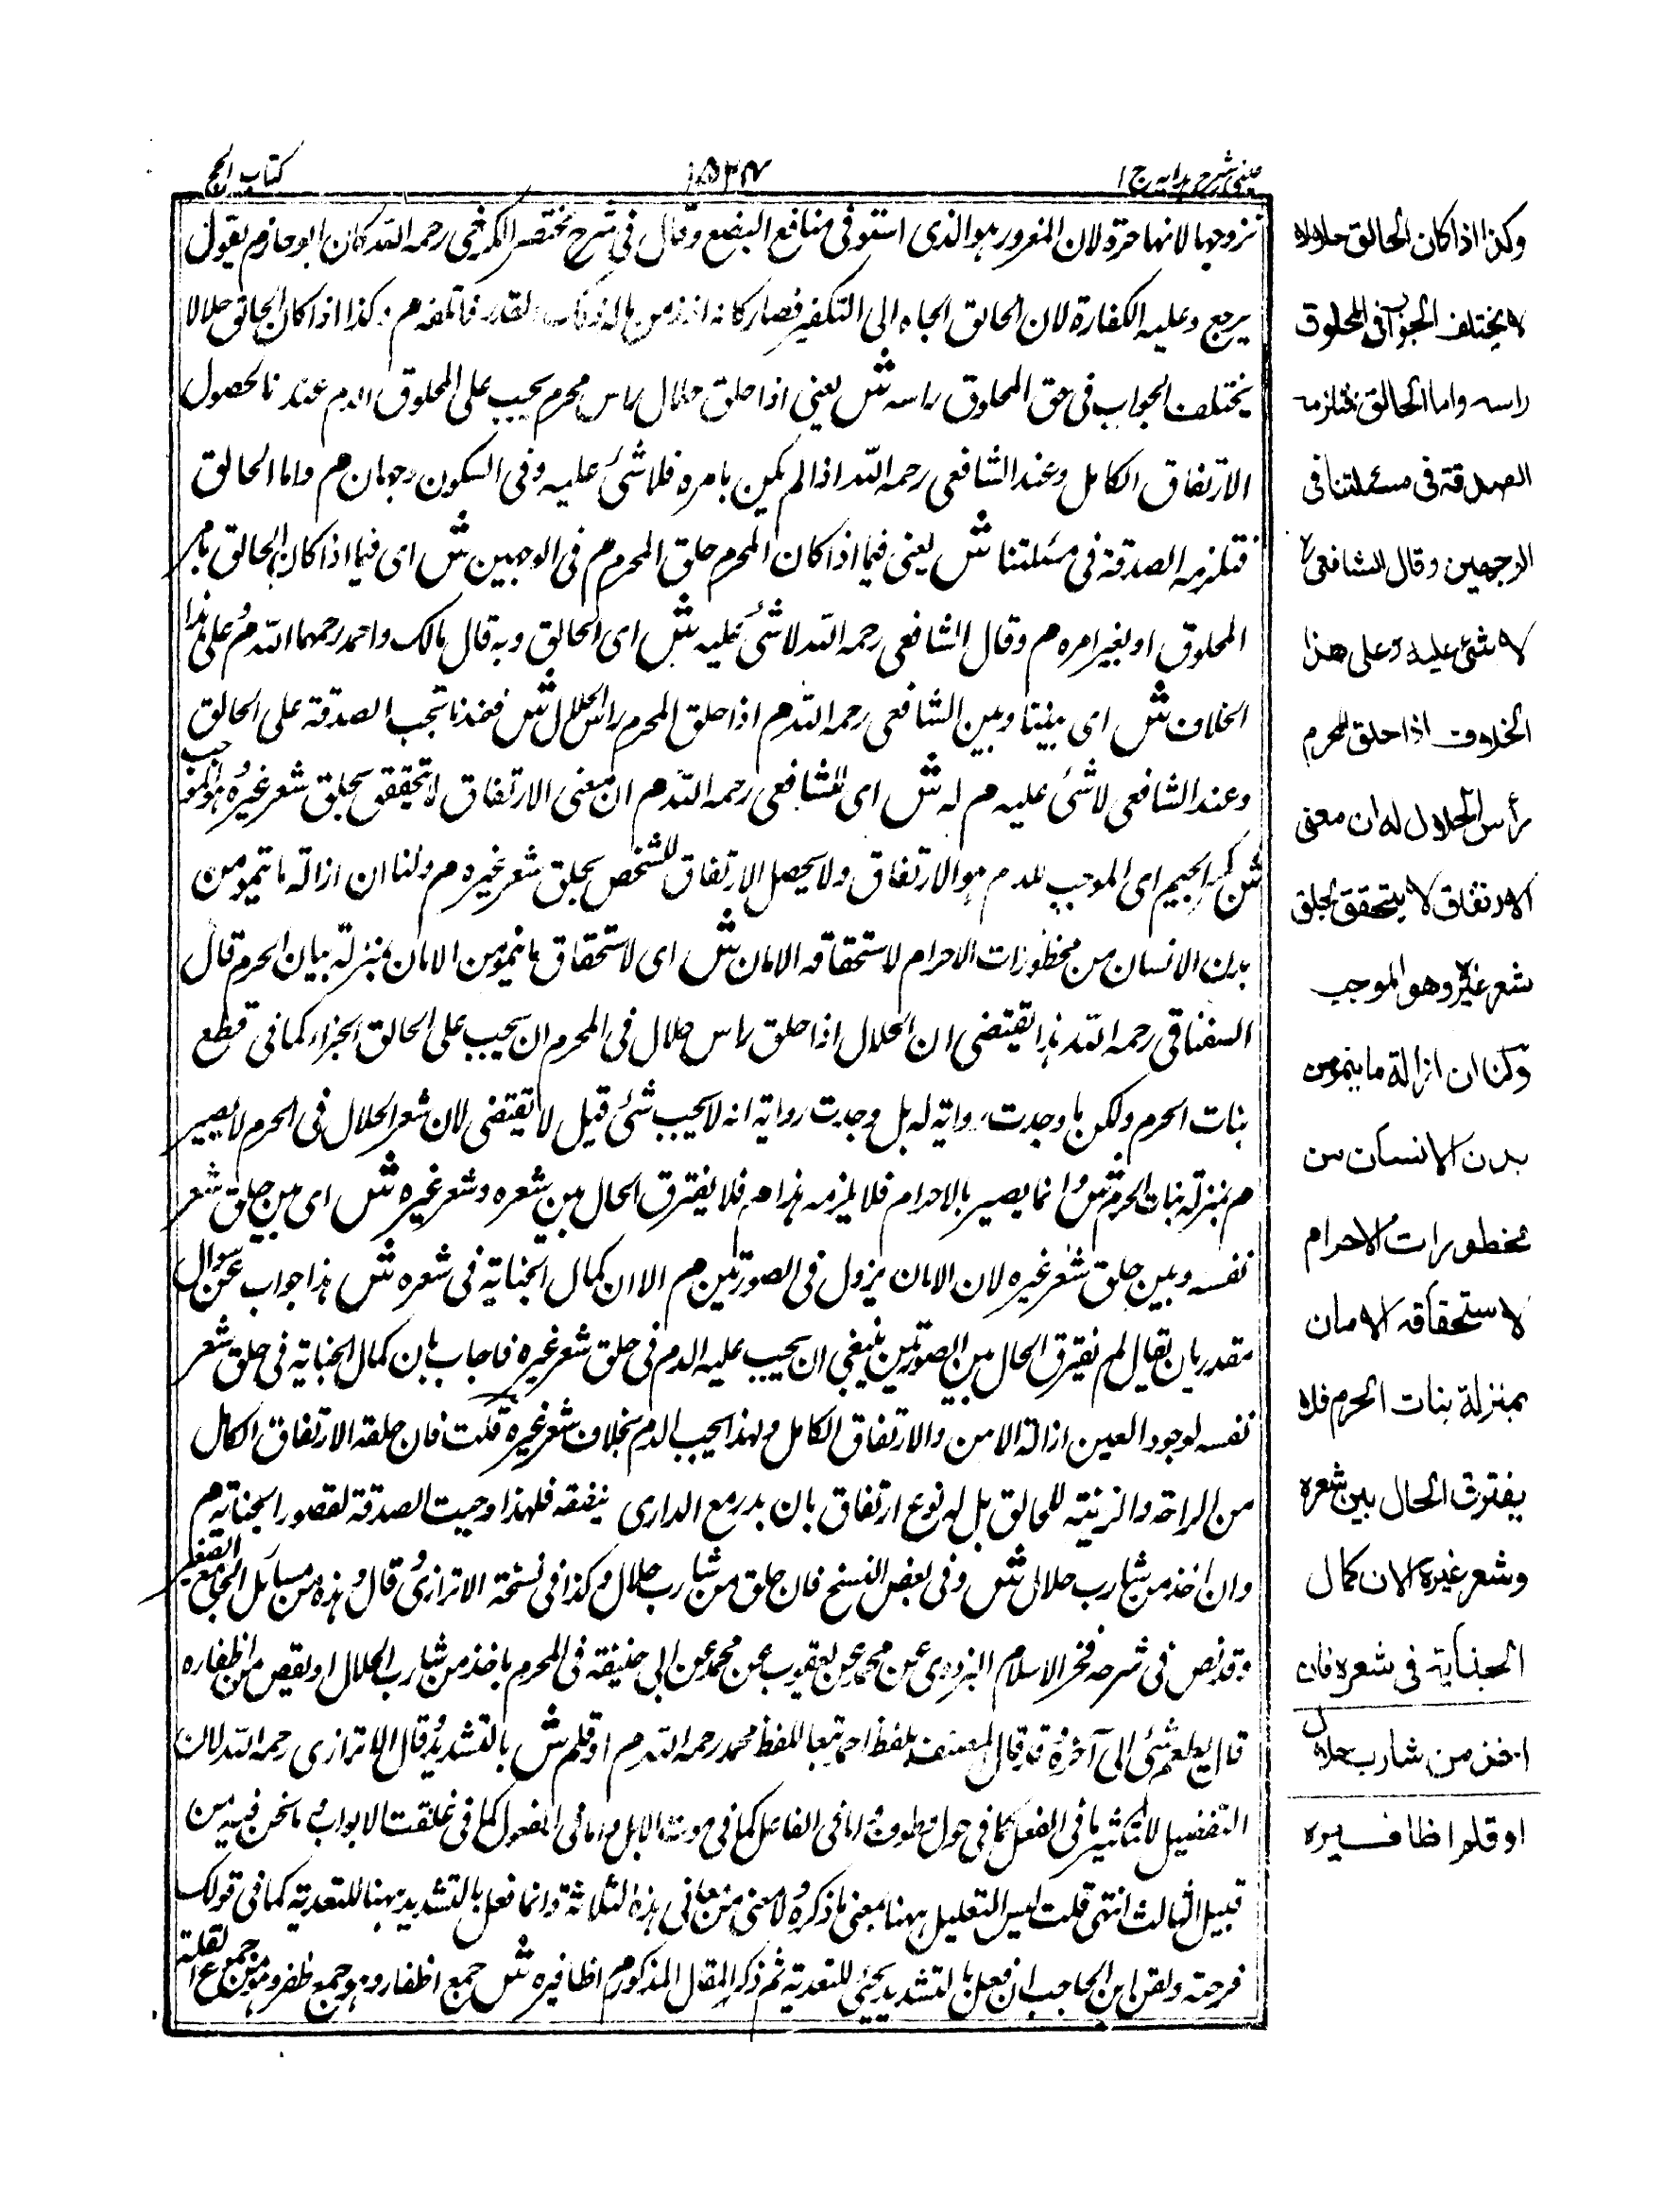 عینی شرح ہدایہ ج ا
۱۵۳۴
کتاب الحج
تزوجها لانها حرة لان المغرور هو الذی استوفی منافع البضع وقال فی شرح مختصر الکرخی رحمه الله کان ابو حازم یقول
یرجع وعلیه الکفارة لان الحالق الجاه الی التکفیر فصار کانه اخذ من ماله ذلک القدر فاتلفه م وکذا اذا کان الحالق حلالا لا
یختلف الجواب فی حق المحلوق راسه ش یعنی اذا حلق حلال راس محرم یجب علی المحلوق الدم عندنا لحصول
الارتفاق الکامل وعند الشافعی رحمه الله اذا لم یکن بامره فلا شئ علیه وفی السکون وجهان م واما الحالق
فتلزمه الصدقة فی مسئلتنا ش یعنی فیما اذا کان المحرم حلق المحرم م فی الوجهین ش ای فیما اذا کان الحالق بامر
المحلوق او بغیر امره م وقال الشافعی رحمه الله لا شئ علیه ش ای الحالق وبه قال مالک واحمد رحمهما الله م وعلی هذا
الخلاف ش ای بیننا وبین الشافعی رحمه الله م اذا حلق المحرم راس الحلال ش فعندنا تجب الصدقة علی الحالق
وعند الشافعی لا شئ علیه م له ش ای للشافعی رحمه الله م ان معنی الارتفاق لا یتحقق بحلق شعر غیره وهو الموجب
ش بکسر الجیم ای الموجب للدم هو الارتفاق ولا یحصل الارتفاق للشخص بحلق شعر غیره م ولنا ان ازالة ما ینمو من
بدن الانسان من محظورات الاحرام لاستحقاقه الامان ش ای لاستحقاق ما ینمو من الامان بمنزلة بیان الحرم قال
السغناقی رحمه الله هذا یقتضی ان الحلال اذا حلق راس حلال فی المحرم ان یجب علی الحالق الجزاء کما فی قطع
بنات الحرم ولکن ما وجدت روایة له بل وجدت روایة انه لا یجب شئ قیل لا یقتضی لان شعر الحلال فی الحرم لا یصیر
م بمنزلة بنات الحرم ش وانما یصیر بالاحرام فلا یلزمه هذا م فلا یفترق الحال بین شعره وشعر غیره ش ای بین حلق شعر
نفسه وبین حلق شعر غیره لان الامان یزول فی الصورتین م الا ان کمال الجنایة فی شعره ش هذا جواب عن سوال
مقدر بان یقال لم یفترق الحال بین الصورتین ینبغی ان یجب علیه الدم فی حلق شعر غیره فاجاب بان کمال الجنایة فی حلق شعر
نفسه لوجود العین ازالة الامن والارتفاق الکامل ولهذا یجب الدم بخلاف شعر غیره قلت فان حلقه الارتفاق الکامل
من الراحة والزینة للحالق بل له نوع ارتفاق بان فلهذا وجبت الصدقة لقصور الجنایة م
وان اخذ من شارب حلال ش وفی بعض النسخ فان حلق من شارب حلال وکذا فی نسخة الاترازی قال وهذه من مسائل الجامع الصغیر
وقد نص فی شرحه فخر الاسلام البزدوی عن محمد عن یعقوب عن محمد عن ابی حنیفة فی المحرم یاخذ من شارب الحلال او یقص من اظفاره
قال یطعم شئ الی آخره قد قال المصنف بلفظ تبعا للفظ محمد رحمه الله م او قلم ش بالتشدید قال الاترازی رحمه الله لان
التفعیل للتکثیر اما فی الفعل کما فی جول وطوف واما فی الفاعل کما فی موتت الابل واما فی المفعول کما فی غلقت الابواب وما نحن فیه من
قبیل الثالث انتهی قلت لیس التعلیل ههنا بمعنی ما ذکره ولا معنی من معانی هذه الثلاثة وانما فعل بالتشدید ههنا للتعدیة کما فی قولک
فرحته ابن الحاجب ان فعل بالتشدید یجئ للتعدیة ثم ذکر المقال المذکور م اظافیره ش جمع اظفار وهو جمع ظفر وهو من جموع القلة
وکذا اذا کان الحالق حلالا
لا یختلف الجواب فی المحلوق
راسه واما الحالق فتلزمه
الصدقة فی مسئلتنا فی
الوجهین وقال الشافعی رح
لا شئ علیه وعلی هذا
الخلاف اذا حلق المحرم
رأس الحلال له ان معنی
الارتفاق لا یتحقق بحلق
شعر غیره وهو الموجب
ولنا ان ازالة ما ینمو من
بدن الانسان من
محظورات الاحرام
لاستحقاقه الامان
بمنزلة بنات الحرم فلا
یفترق الحال بین شعره
وشعر غیره الا ان کمال
الجنایة فی شعره فان
اخذ من شارب حلال
او قلم اظافیره